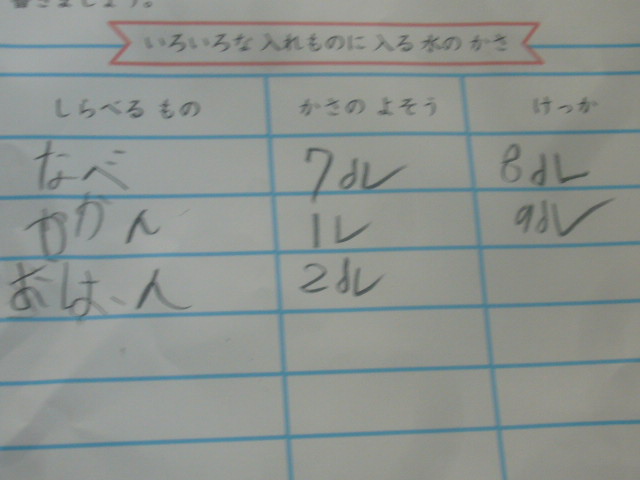 いろいろな入れものに入る水のかさ
しらべるもの かさのよそう けっか
なべ 7dL 8dL
やかん 1L 9dL
おはん 2dL